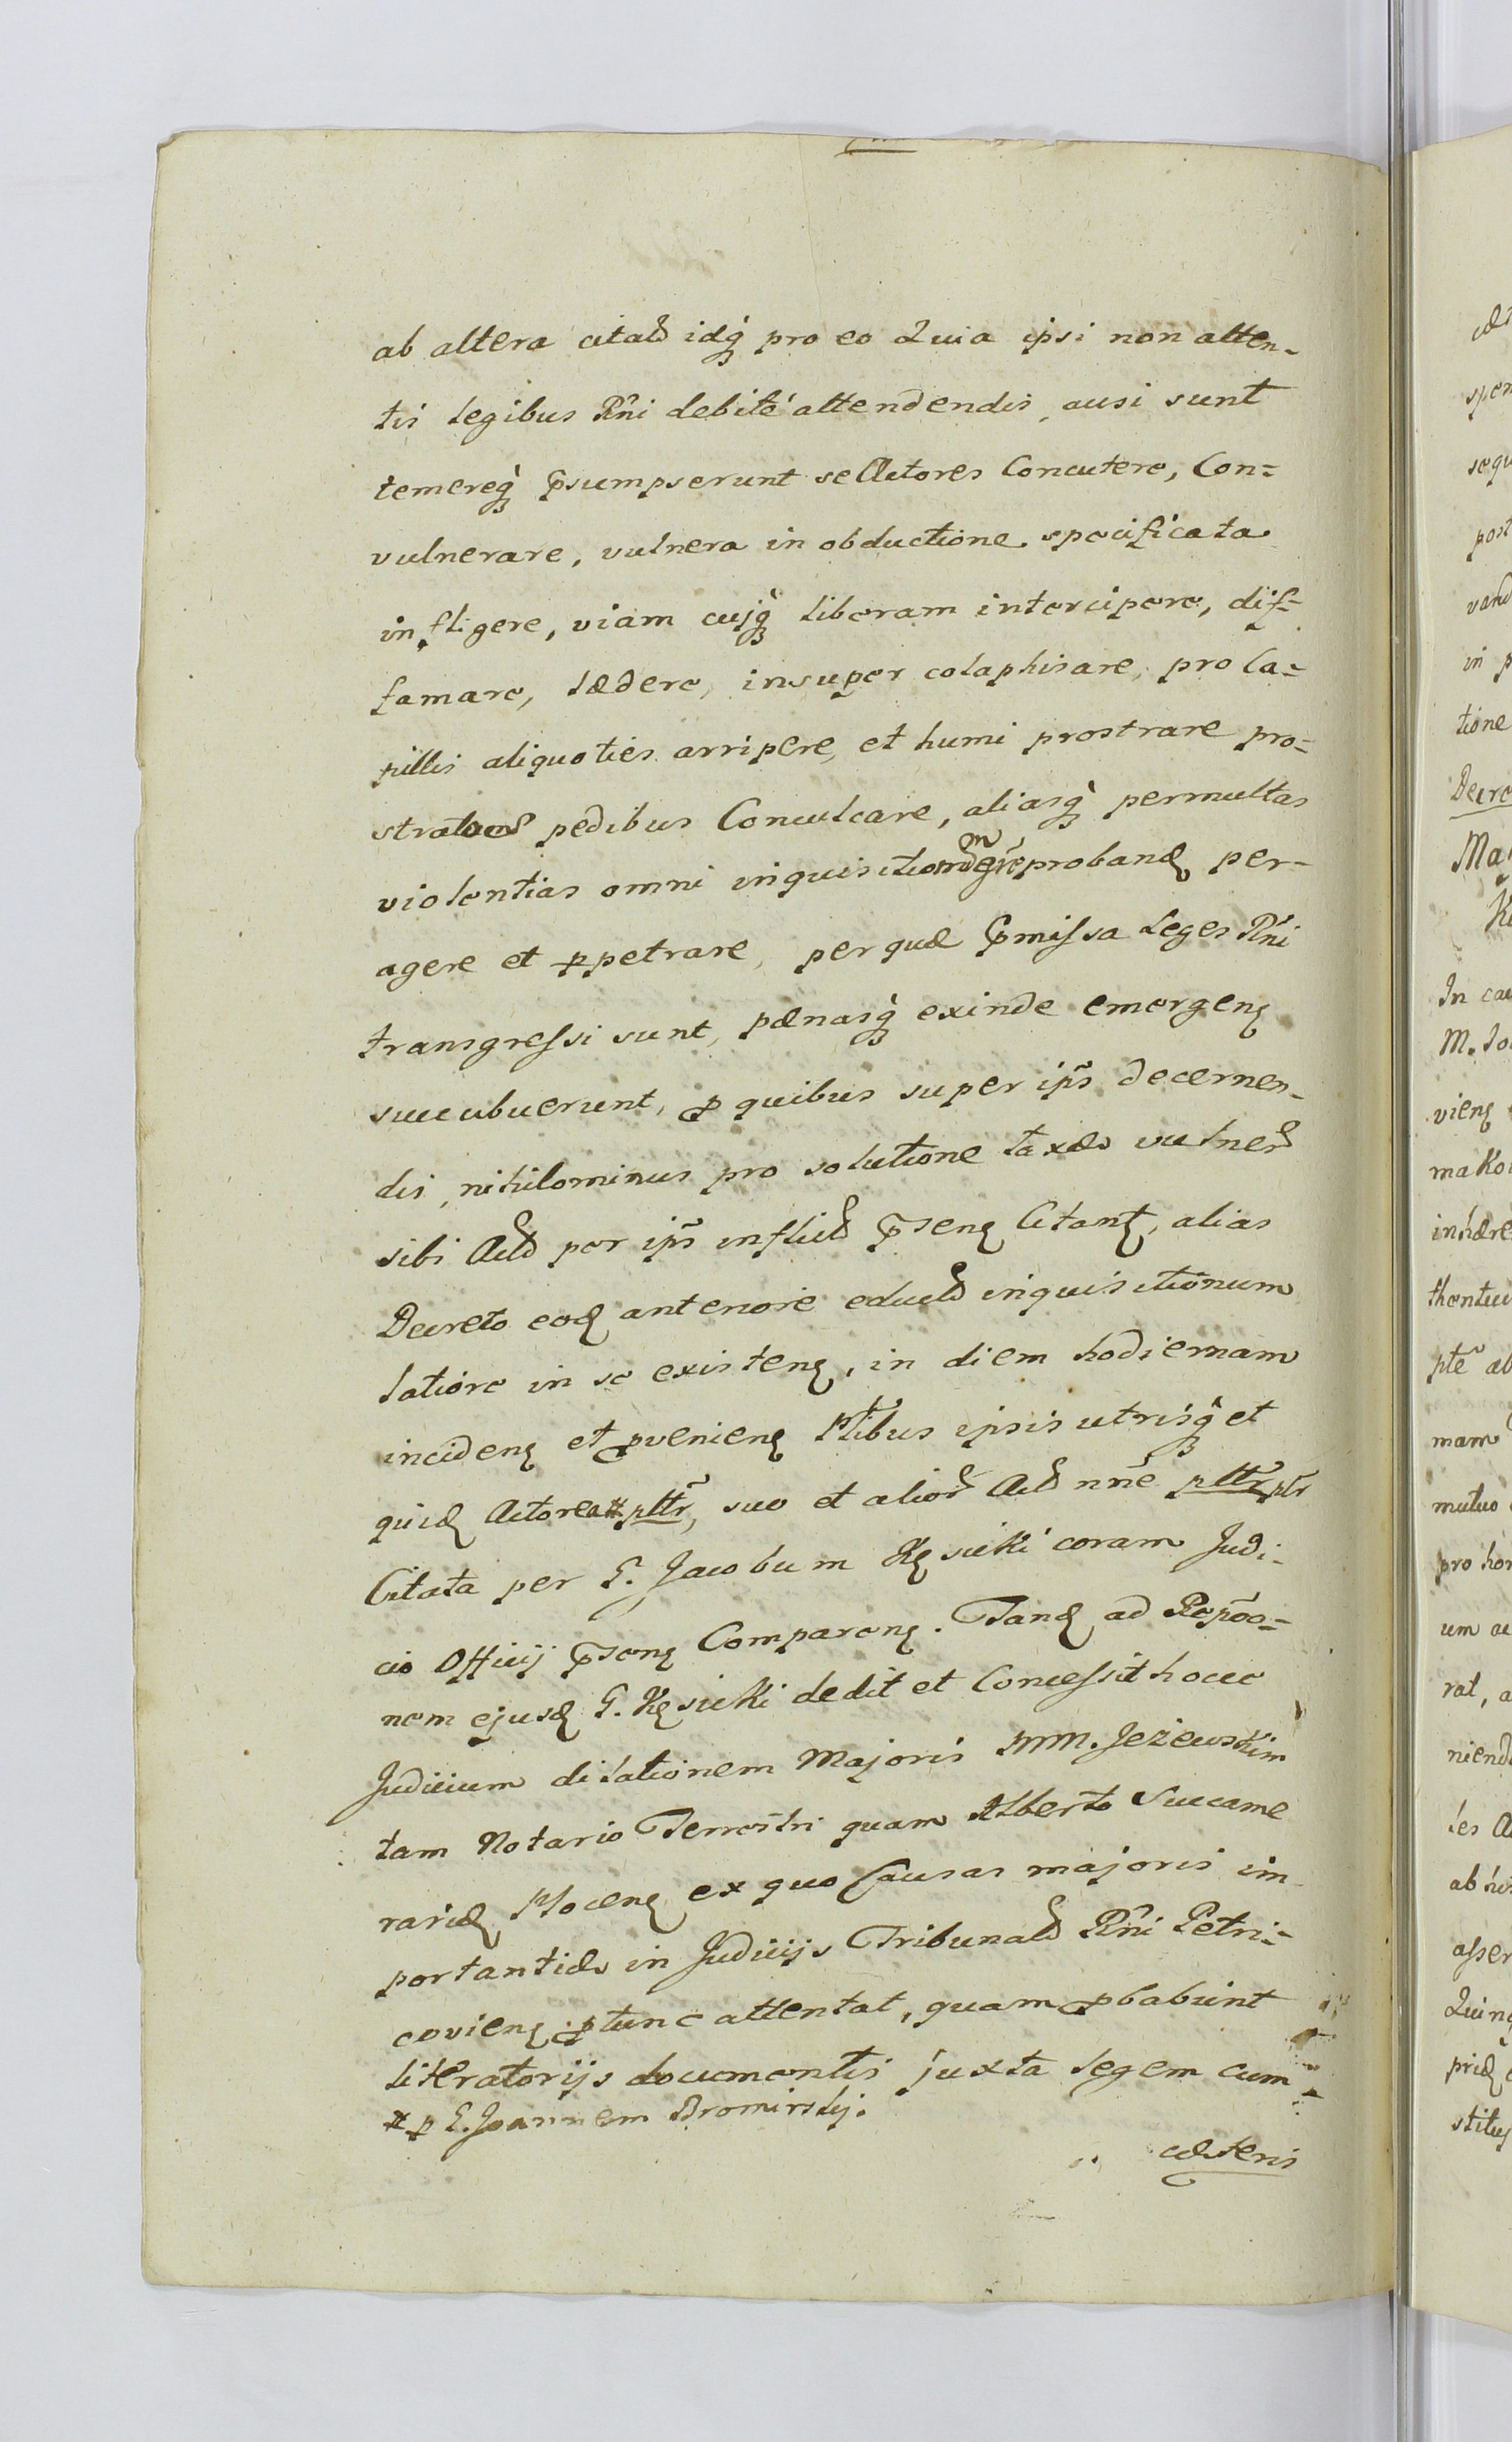 ab altera citatꝭ idq̨ pro eo Quia ipsi non atten-
tis legibus Rñi debitè attendendis, ausi sunt
temereq̨ p̄sumpserunt se Actores Concutere, Con=
vulnerare, vulnera in obductione specificata
infligere, viam cujq̨ liberam intercipere, dif=
famare, lædere, insuper colaphisare, pro Ca=
pillis aliquoties arripere, et humi prostrare pro=
stratos pedibus Conculcare, aliasq̨ permultas
violentias omni inquisitionũ probandꝭ per-
agere et ꝑpetrare, per quæ p̄missa Leges Rñi
transgressi sunt, pænasq̨ exinde emergenꝭ
succubuerunt, ꝓ quibus super ipš decernen-
dis, nihilominus pro solutione taxæ vulnerꝭ
sibi Actꝭ per ipš inflictꝭ p̄senꝭ Citanꝭ, alias
Decreto eodꝭ anteriore eductꝭ inquisitionum
latione in se existenꝭ, in diem hodiernam
incidenꝭ et ꝓvenienꝭ Ptibus ipsis utrisq̨ et
quidꝭ Actorea # pltr̃, suo et aliorꝭ Actꝭ nñe pltr̃ ptr
Citata per G. Jacobum Kęsicki coram Judi-
cio Officij p̄senꝭ Comparenꝭ. Tandꝭ ad Repõo=
nem ejusdꝭ G. Kęsicki dedit et Concessit hocce
Judicium dilationem Majoris MM. Jeżewskim
tam Notario Terrestri quam Alberto Succame
rariꝭ Plocenꝭ ex quo Causas majoris im
portantiæ in Judicijs Tribunalꝭ Rñi Petri=
covienꝭ ꝓtunc attentat, quam ꝓbabunt
literatorijs documentis juxta legem cum
# ꝑ G. Joannem Bromirskj.
cæteris